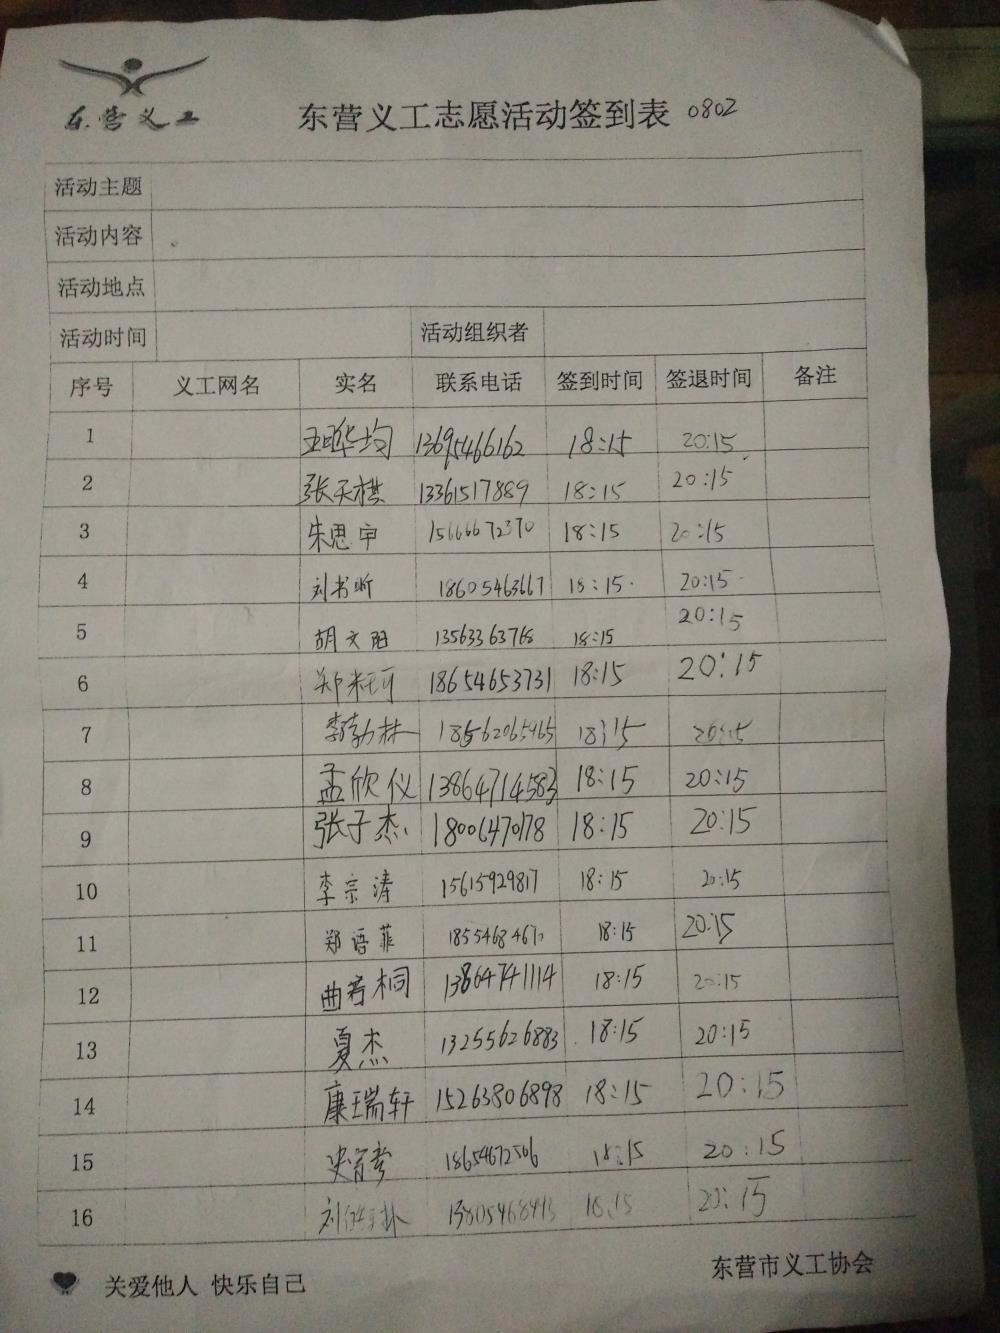 东营义工
东营义工志愿活动签到表 0802
活动主题
活动内容
活动地点
活动时间 活动组织者
序号 义工网名 实名 联系电话 签到时间 签退时间 备注
1 13695466162 18:15 20:15
2 张天棋 13361517889 18:15 20:15
3 朱思宇 15666672370 18:15 20:15
4 刘书昕 18605463667 18:15 20:15
5 胡文阳 13563363768 18:15 20:15
6 18654653731 18:15 20:15
7 18562065965 18:15 20:15
8 孟欣仪 13864714583 18:15 20:15
9 张子杰 18006470178 18:15 20:15
10 李宗涛 15615929817 18:15 20:15
11 郑语菲 18:15 20:15
12 曲若桐 13864741114 18:15 20:15
13 夏杰 13255626883 18:15 20:15
14 康瑞轩 15263806898 18:15 20:15
15 18654672506 18:15 20:15
16 18:15 20:15
关爱他人 快乐自己
东营市义工协会